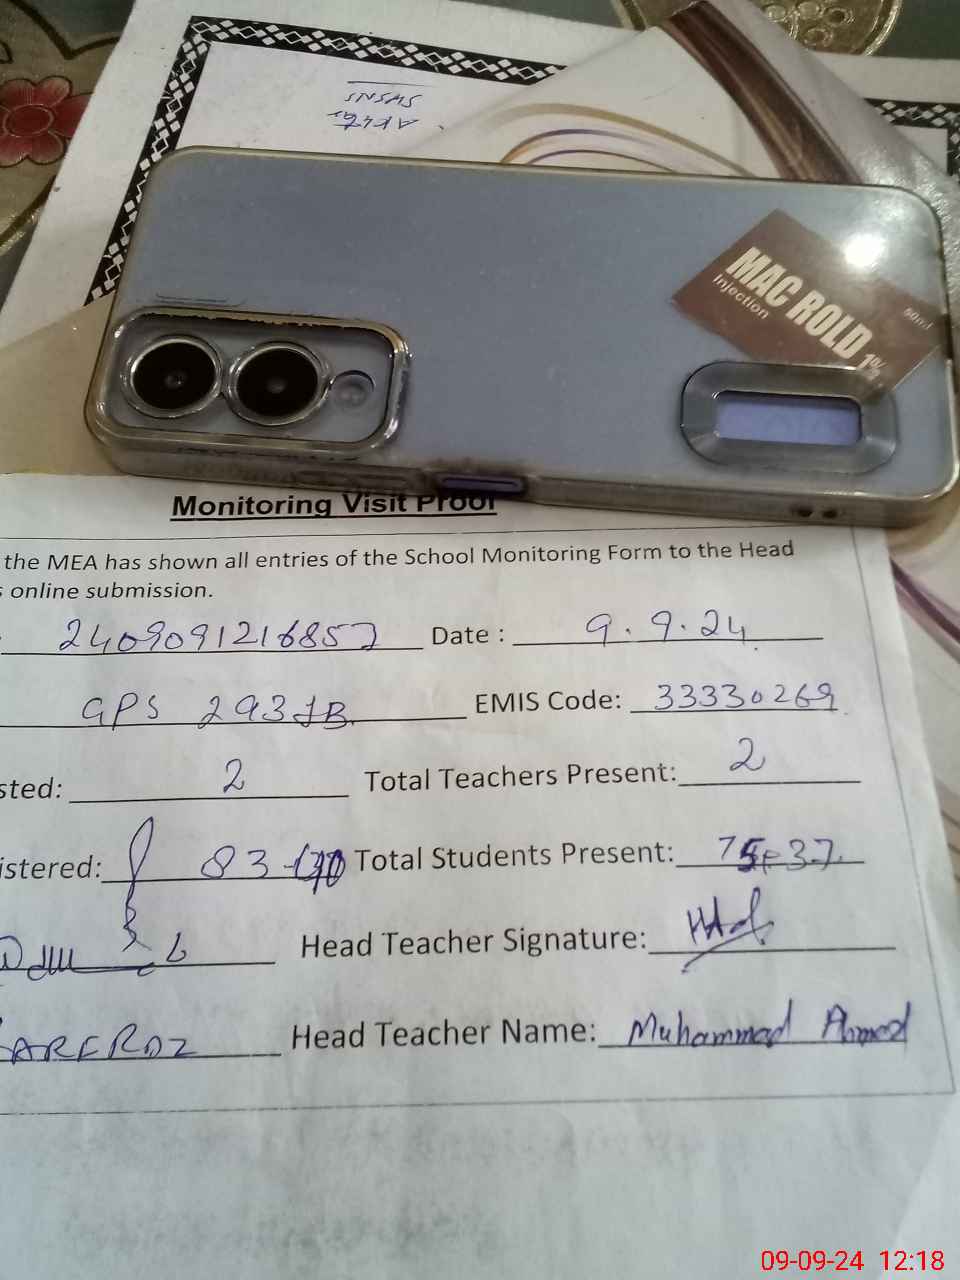 MAC ROLD 1%
Injection
50ml
Monitoring Visit Proof
the MEA has shown all entries of the School Monitoring Form to the Head
s online submission.
2409091216857 Date : 9.9.24
GPS 293JB EMIS Code: 33330269
sted: 2 Total Teachers Present: 2
istered: 83 Total Students Present: 75 37
Head Teacher Signature:
Head Teacher Name: Muhammad Ahmad
09-09-24 12:18